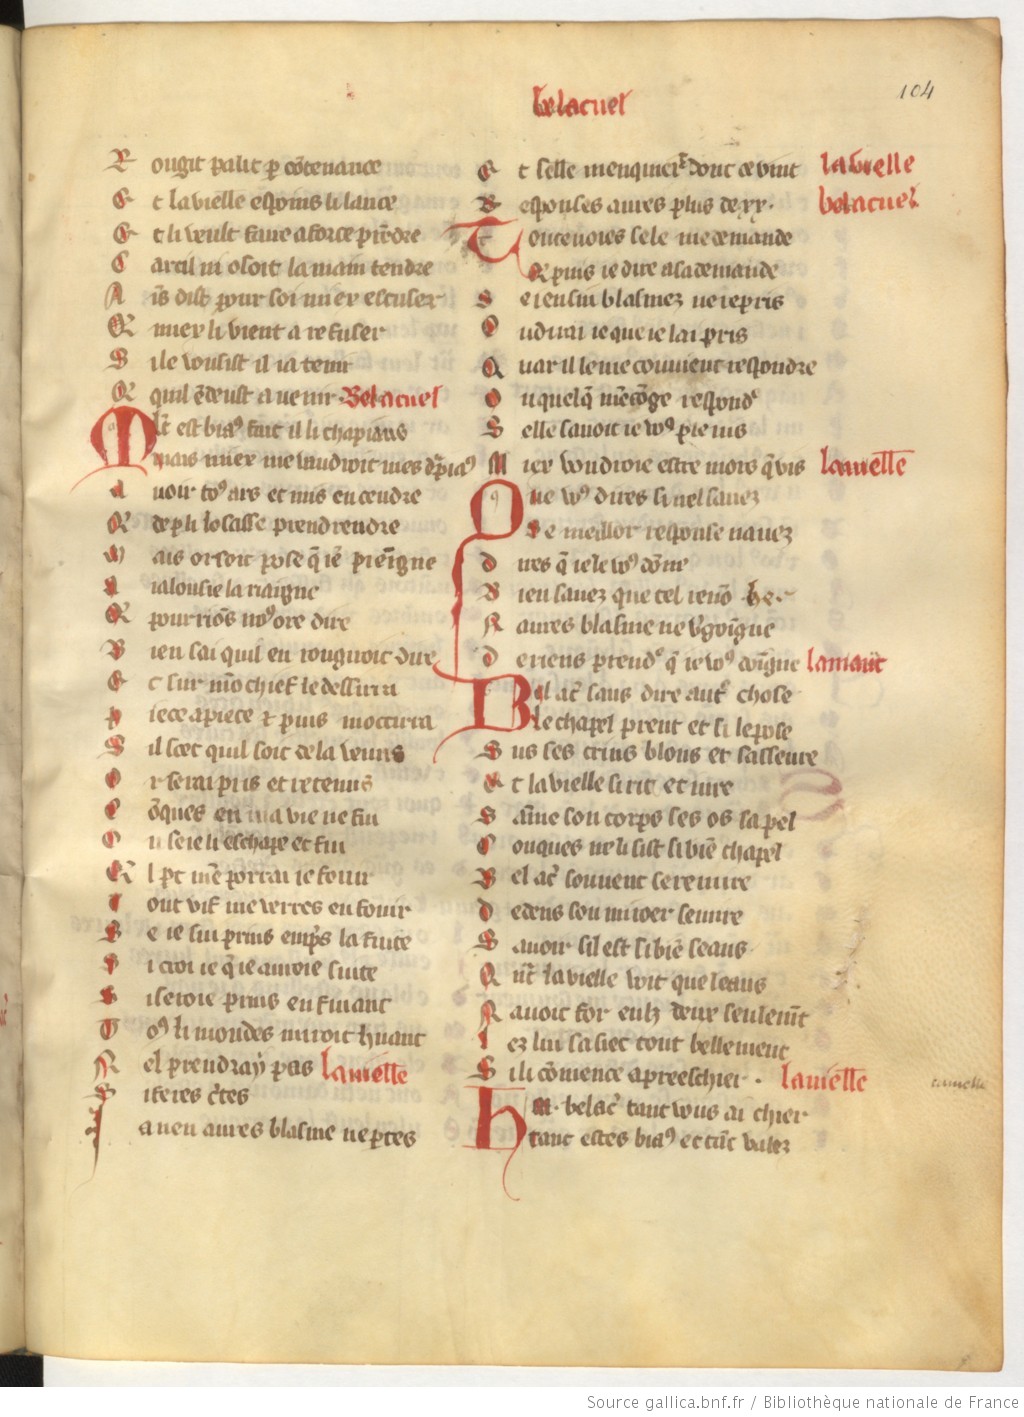 belacuel
104
R ougit palit p cōtenance
E t la vielle es poins li lance
E t li veult faire a force prēdre
C ar cil ni osoit la main tendre
A is dist pour soi mier escuser
Q mier li vient a refuser
S i le vousist il ia tenir
Q quil ē deust avenir Belacuel
Mlt est biaus fait il li chapiaus
mais mier me vaudroit mes drapiaus
A voir tous ars et mis en cendre
Q de p li losasse prendrendre
M ais or soit pose q ie preigne
A ialousie la riaigne
Q pourriōs nous ore dire
B ien sai quil en rougnoit dire
E t sur mō chief le dessirra
P iece a piece et puis moccirra
S il scet quil soit de la venus
O r serai pris et retenus
C ōques en ma vie ne fui
O u se ie li eschape et fui
Q l pt mē porrai ie fouir
T out vif me verres enfouir
S e ie sui prins empres la fuite
S i croi ie q ie auroie suite
S i seroie prins en fuiant
T ous li mondes miroit huant
N el prendray pas la vielle
S i feres certes
I a nen aures blasme ne pertes
E t selle menquiert dont ce vint la vielle
R espouses aures plus de xx. belacuel
Toutevoies se le me demande
Q puis ie dire a sa demande
S e ien sui blasmez ne repris
O u dirai ie que ie lai pris
Q uar il le me couvient respondre
O u quelq mēcōge respondre
S elle savoit ie vous plevis
M ier voudroie estre mors q vis la vielle
Que vous dires si nel savez
Se meillor response navez
D ites q ie le vous dōne
B ien savez que tel renō he.
N aures blasme ne vgoigne
D e riens prendre q ie vous doigne lamant
Bel ac sans dire autre chose
le chapel prent et si le pose
S us ses crins blons et sasseure
E t la vielle si rit et iure
S ame son corps ses os sa pel
C onques ne li sist si biē chapel
B el ac souvent se remire
D edens son miroer se mire
S avoir sil est si biē seans
Q nt la vielle voit que leans
N avoit for eulz deux seulemt
L ez lui sasiet tout bellement
S i li cōmence a preeschier . la vielle
Ha. belac tant vous ai chier
tant estes biaus et tāt valez
la vielle
Source gallica.bnf.fr / Bibliothèque nationale de France